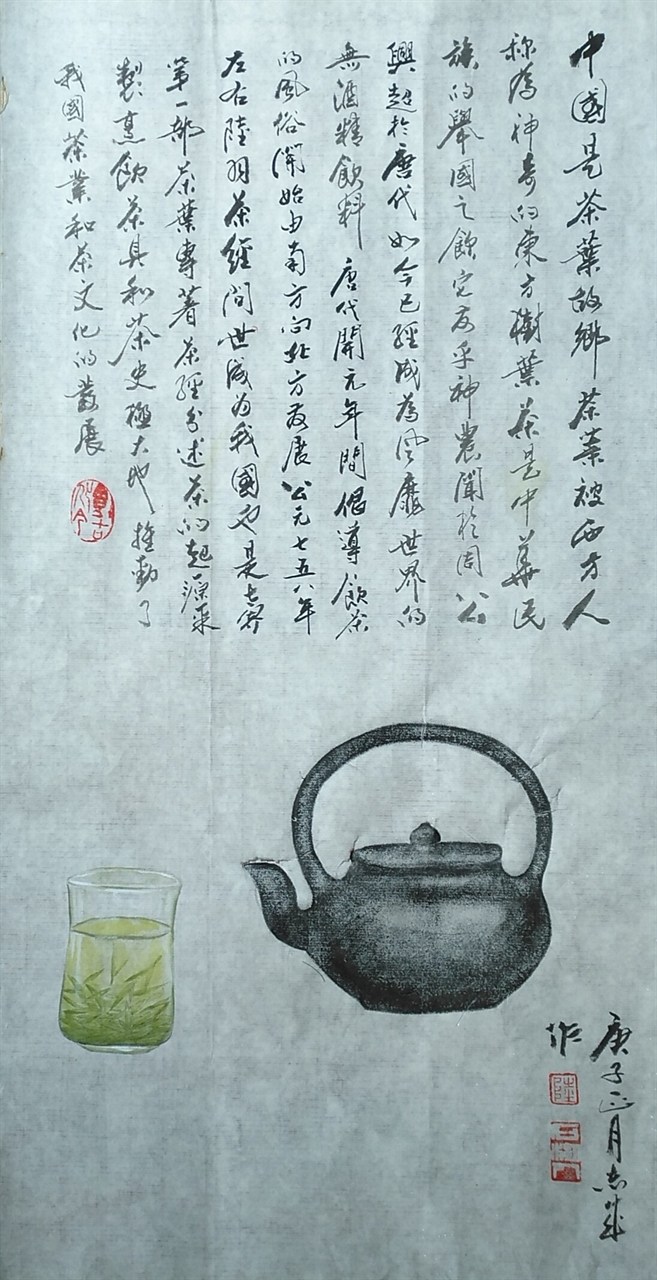 中國是茶葉故鄉茶葉被西方人
称為神奇的東方樹葉茶是中華民
族的舉國之飲它发乎神農聞於周公
興起於唐代如今已經成為风靡世界的
無酒精飲料 唐代開元年間倡導飲茶
的風俗開始由南方向北方发展公元七五八年
左右陸羽茶經问世成为我國也是世界
第一部茶葉專著茶經分述茶的起源采
製烹飲茶具和茶史極大地推動了
我國茶業和茶文化的發展
庚子正月志成
作
陸